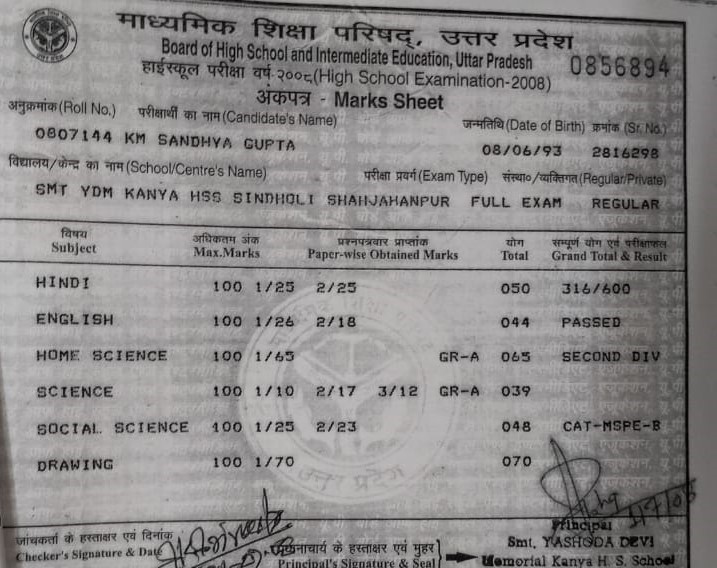 माध्यमिक शिक्षा परिषद्, उत्तर प्रदेश
Board of High School and Intermediate Education, Uttar Pradesh
0856894
हाईस्कूल परीक्षा वर्ष-२००८(High School Examination-2008)
अंकपत्र - Marks Sheet
अनुक्रमांक(Roll No.) परीक्षार्थी का नाम(Candidate's Name) जन्मतिथि(Date of Birth) क्रमांक (Sr. No.)
0807144 KM SANDHYA GUPTA 08/06/93 2816298
विद्यालय/केन्द्र का नाम(School/Centre's Name) परीक्षा प्रवर्ग(Exam Type) संस्था०/व्यक्तिगत(Regular/Private)
SMT YDM KANYA HSS SINDHOLI SHAHJAHANPUR FULL EXAM REGULAR
विषय अधिकतम अंक प्रश्नपत्रवार प्राप्तांक योग सम्पूर्ण योग एवं परीक्षाफल
Subject Max.Marks Paper-wise Obtained Marks Total Grand Total & Result
HINDI 100 1/25 2/25 050 316/600
ENGLISH 100 1/26 2/18 044 PASSED
HOME SCIENCE 100 1/65 GR-A 065 SECOND DIV
SCIENCE 100 1/10 2/17 3/12 GR-A 039
SOCIAL SCIENCE 100 1/25 2/23 048 CAT-MSPE-B
DRAWING 100 1/70 070
उत्तर प्रदेश
Principal
जांचकर्ता के हस्ताक्षर एवं दिनांक
Checker's Signature & Date
प्रधानाचार्य के हस्ताक्षर एवं मुहर
Principal's Signature & Seal
Smt. YASHODA DEVI
Memorial Kanya H. S. School